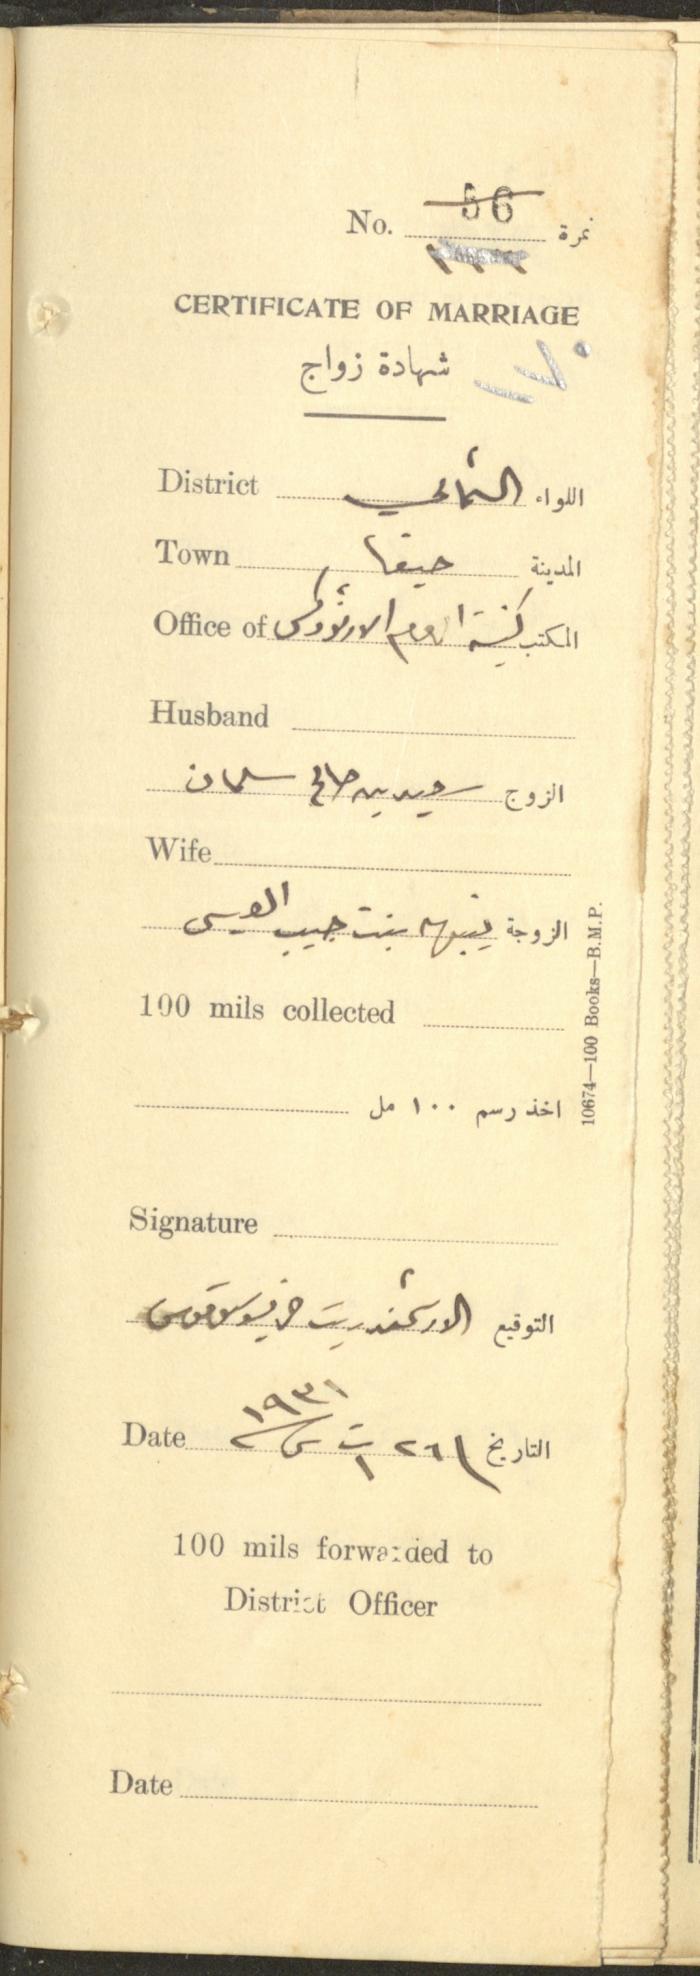 No. 56 نمرة
CERTIFICATE OF MARRIAGE
شهادة زواج
District الشمالي اللواء
Town حيفا المدينة
Office of كنيسة الروم الارثوذكس المكتب
Husband
الزوج سعيد بن صالح سلمان
Wife
الزوجة بنت حبيب العيسى
100 mils collected
اخذ رسم ١٠٠ مل
Signature
التوقيع الارشمندريت
Date ٢٦ ت ١ سنة ١٩٣١ التاريخ
100 mils forwarded to
District Officer
Date
10674—100 Books—B.M.P.